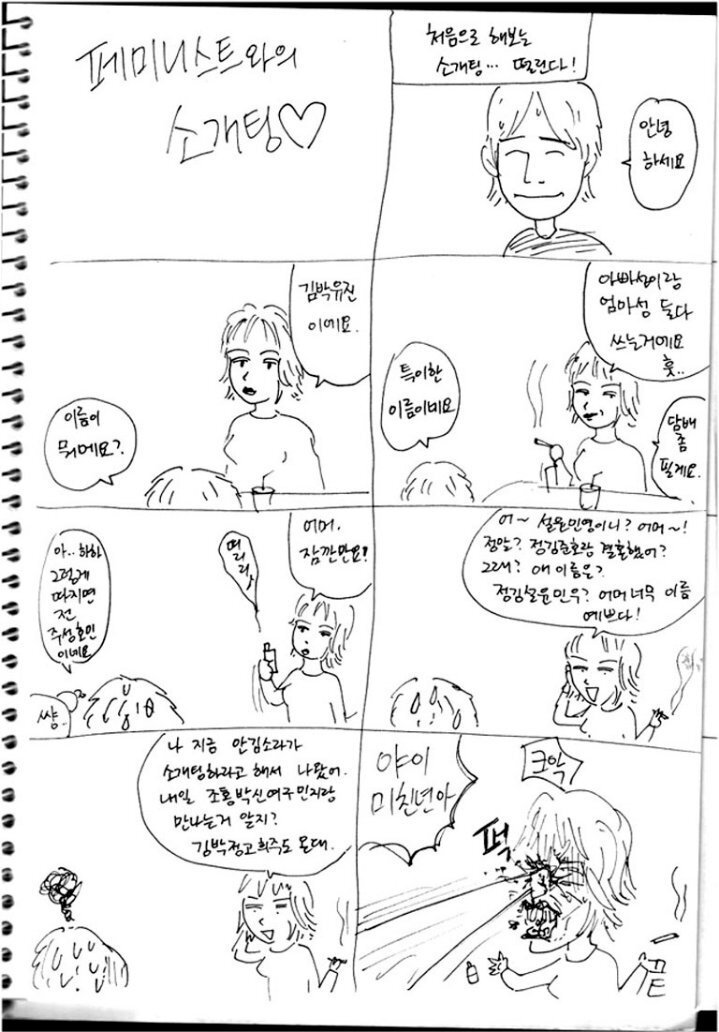 페미니스트와의
소개팅♡
처음으로 해보는
소개팅... 떨린다!
안녕
하세요
김박유진
이에요.
이름이
뭐예요?
아빠성이랑
엄마성 둘다
쓰는거예요
훗..
특이한
이름이네요
담배
좀
필게요.
어머,
잠깐만요!
띠리리
아.. 하하
그렇게
따지면
전
주성호민
이네요
썅..
어~ 설윤민영이니? 어머~!
정말? 정김준호랑 결혼했어?
그래? 애 이름은?
정김설윤민우? 어머 너무 이름
예쁘다!
나 지금 안김소라가
소개팅하라고 해서 나왔어.
내일 조홍박신여구민지랑
만나는거 알지?
김박정고희주도 온대.
야이
미친년아
크악
퍽